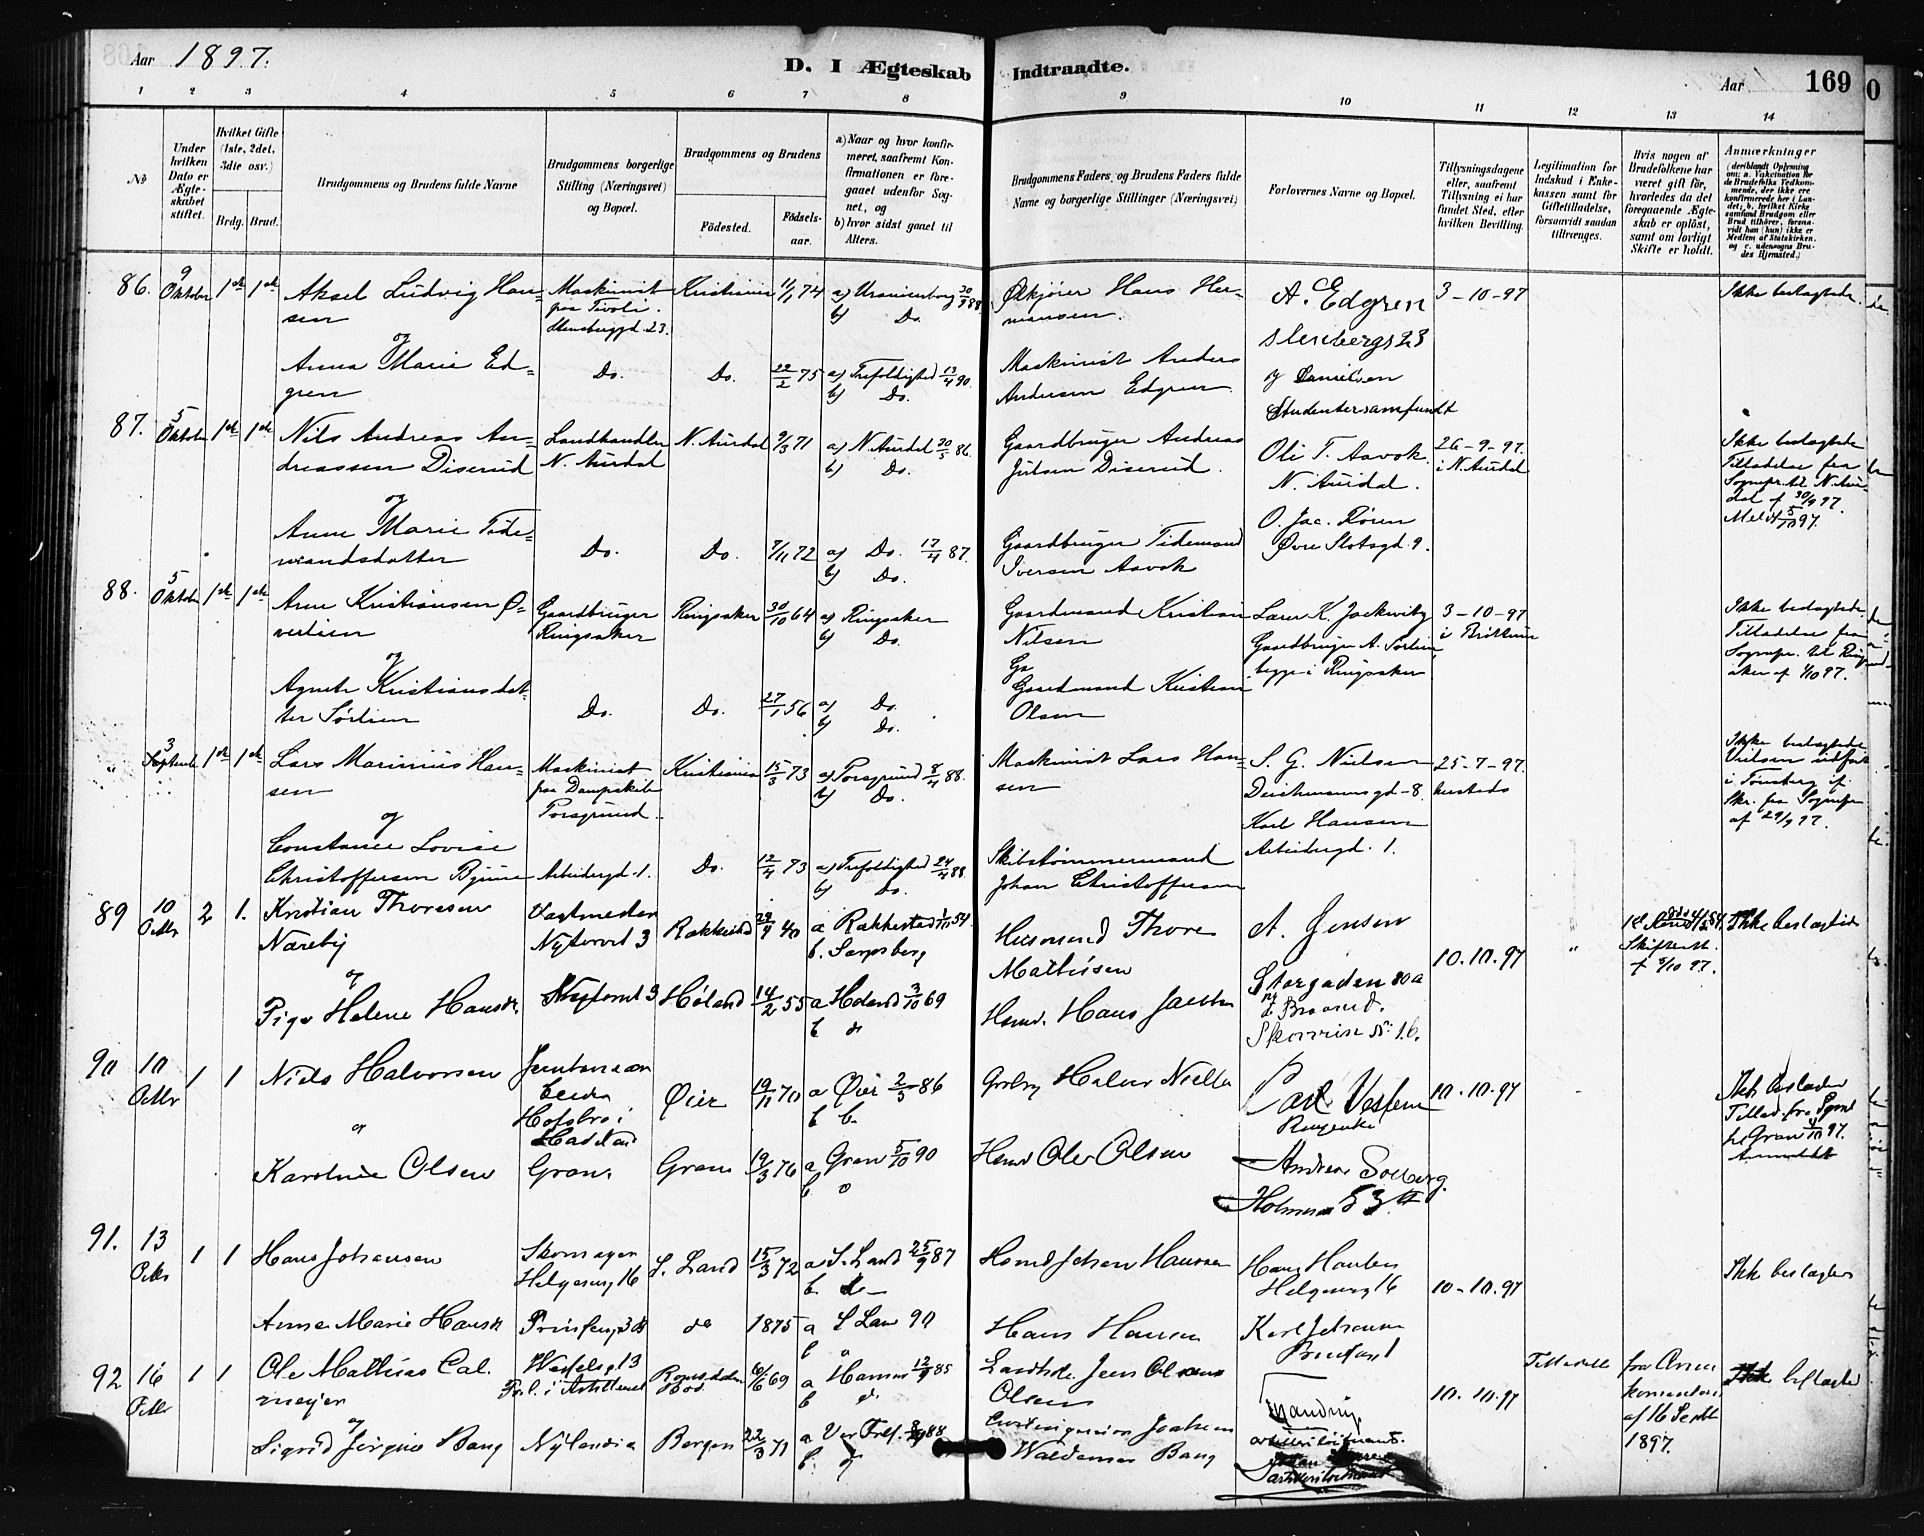 Aar 1897.
D. I Ægteskab Indtraadte.
Aar 169
1 2 3 4 5 6 7 8 9 10 11 12 13 14
No
Under hvilken Dato er Ægteskabet stiftet.
Hvilket Gifte (1ste, 2det, 3die osv.)
Brdg. Brud.
Brudgommens og Brudens fulde Navne
Brudgommens borgerlige Stilling (Næringsvei) og Bopæl.
Brudgommens og Brudens
Födested. Födsels-aar.
a) Naar og hvor konfirmeret, saafremt Konfirmationen er foregaaet udenfor Sognet, og
b) hvor sidst gaaet til Alters.
Brudgommens Faders, og Brudens Faders fulde Navne og borgerlige Stillinger (Næringsvei)
Forlovernes Navne og Bopæl.
Tillysningsdagene eller, saafremt Tillysning ei har fundet Sted, efter hvilken Bevilling.
Legitimation for Indskud i Enkekassen samt for Giftetilladelse, forsaavidt saadan tiltrænges.
Hvis nogen af Brudefolkene har været gift för, hvorledes da det foregaaende Ægteskab er oplöst, samt om lovligt Skifte er holdt.
Anmærkninger
(deriblandt Oplysning om: a. Vakcination for de Brudefolks Vedkommende, der ikke ere konfirmerede her i Landet; b. hvilket Kirkesamfund Brudgom eller Brud tilhörer, forsaavidt han (hun) ikke er Medlem af Statskirken, og c. udensogns Brudes Hjemsted.)
86. 9 Oktober 1ste 1ste Aksel Ludvig Hansen Maskinist paa Tivoli. Stensberggd. 23. Kristiania 11/1 74 a) Uranienborg 30/9 88 b) Do. Ølkjører Hans Hermansen. A. C. Edgren Stensbergs 23 3-10-97 Ikke beslægtede.
og
Anna Marie Edgren Do. Do. 22/2 75 a) Trefoldighed 13/4 90. b) Do. Maskinist Anders Andersen Edgren og Danielsen Studentersamfundt
87. 5 Oktober 1ste 1ste Nils Andreas Andreassen Diserud Landhandler N. Aurdal N. Aurdal 9/3 71 a) N. Aurdal 30/5 86. b) Do. Gaardbruger Andreas Julsen Diserud. Ole T. Aavok. N. Aurdal. 26-9-97. i N. Aurdal Ikke beslægtede Tilladelse fra Sognepr. til N. Aurdal af 30/9 97. Meld 5/10 97.
og
Anne Marie Tidemandsdatter Do. Do. 7/11 72 a) Do. 17/4 87. b) Do. Gaardbruger Tidemand Iversen Aavok O. Jac. Fløren Øvre Slotsgd. 9.
88. 5 Oktober 1ste 1ste Arne Kristiansen Øverlien Gaardbruger Ringsaker Ringsaker 30/10 64 a) Ringsaker b) Do. Gaardmand Kristian Nilsen Lars K. Gaardbruger A. Sørlien, begge i Ringsaker 3-10-97 i Brøttum Ikke beslægtede Tilladelse fra Sognepr. til Ringsaker af 1/10 97.
og
Agnete Kristiansdatter Sørlien Do. Do. 27/1 56 a) Do. b) Do. Gaardmand Kristian Olsen
" 3 September 1ste 1ste Lars Marinius Hansen Maskinist paa Dampskib Porsgrund. Kristiania 15/3 73 a) Porsgrund 8/4 88. b) Do. Maskinist Lars Hansen S. G. Nielsen Deichmannsgd-8. 25-7-97. Ikke beslægtede Vielsen udført i Tønsberg if. Skr. fra Sognepr. af 29/9 97.
og
Constance Lovise Christoffersen Arbeidergd-1. Do. 12/4 73 a) Trefoldighed 24/4 88. b) Do. Skibstømmermand Johan Christoffersen Karl Hansen Arbeidergd. 1.
89 10 Oktbr 2 1. Kristian Thoresen Næreby Vagtmester Nytorvet 3 Rakkestad 29/4 40 a Rakkestad 54. b. Sarpsborg Husmand Thore Mathisen A. Jensen Storgaden 30a 10.10.97 " Skifteatt. f 5/10 97. Ikke beslægtede
og
Pige Helene Hansdr. Nytorvet 3 Høland 14/2 55 a Høland 3/10 69 b do Husmd. Hans Jacobsen
90 10 Oktbr 1 1 Niels Halvorsen Hadeland Øier 19/11 70 a Øier 2/5 86 b b. Grbrg Halvor Nielsen Carl Vestern 10.10.97 Ikke beslægtede Tillad. fra Sgprst til Gran 4/10 97.
og
Karoline Olsen Gran. Gran 19/3 76 a Gran 5/10 90 b o Husmd Ole Olsen Andreas Solberg. Holmens 53
91. 13 Oktbr 1 1 Hans Johansen Skomager Helgesensg 16 S. Land 15/3 72 a S. Land 25/9 87 b do Husmd Johan Hansen Hans Helgesensg 16 10-10.97 Ikke beslægtede
Anne Marie Hansdr Prinsensgd 3B do 1875 a S Land 90 b " Hans Hansen Karl Johansen
92 16 Oktbr 1 1 Ole Mathias Calmeyer Wesselsg. 13 i Artilleriet Romsdalen 10/6 69 a Hammer 12/9 85 b do Jens Olsen Artilleriløitnant. 10.10.97 Tilladelse fra Armekomandoen af 16 Septb 1897. Ikke beslægtede
og
Sigrid Jørgine Bang Nylandia Bergen 22/3 71 a Vor Frels. 88 b do Joakim Waldemar Bang artilleriløitnant